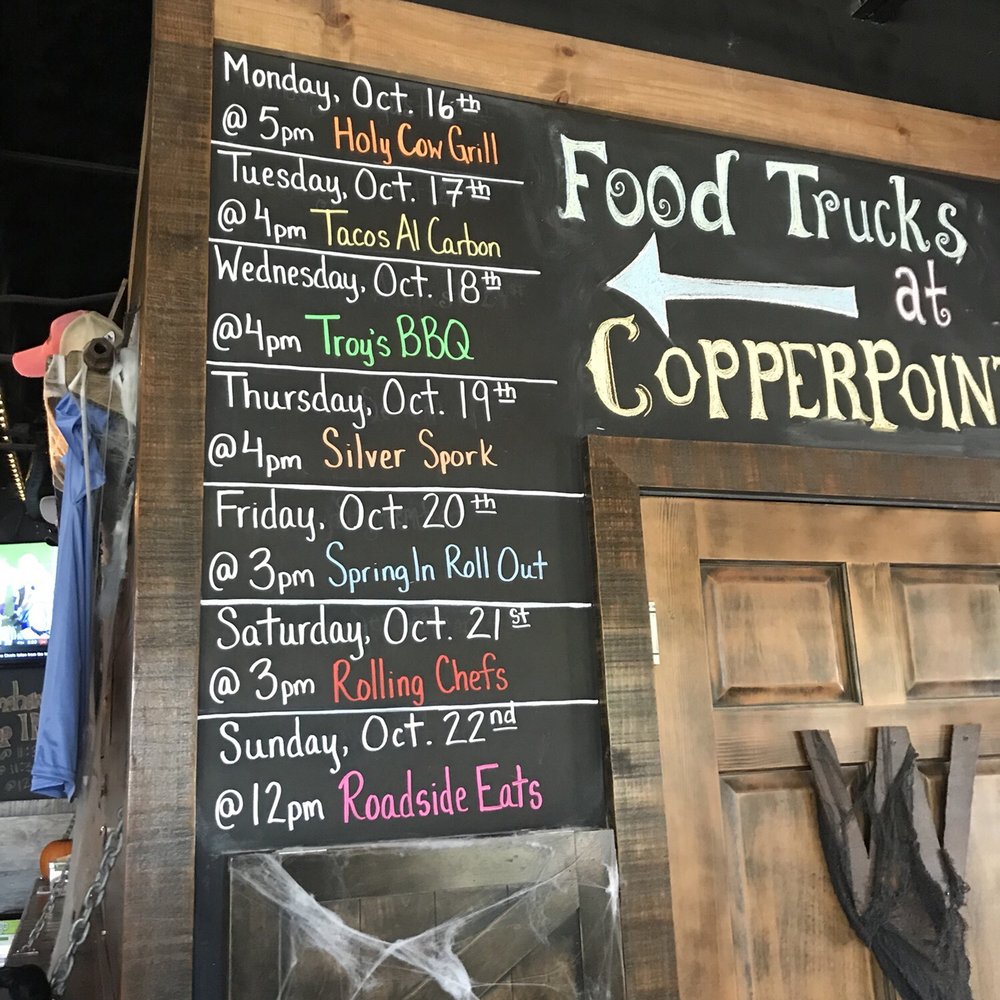 Monday, Oct. 16th
@ 5pm Holy Cow Grill
Tuesday, Oct. 17th
@ 4pm Tacos Al Carbon
Wednesday, Oct. 18th
@4pm Troy's BBQ
Thursday, Oct. 19th
@4pm Silver Spork
Friday, Oct. 20th
@ 3pm Spring In Roll Out
Saturday, Oct. 21st
@ 3pm Rolling Chefs
Sunday, Oct. 22nd
@12pm Roadside Eats
Food Trucks
at
COPPERPOINT